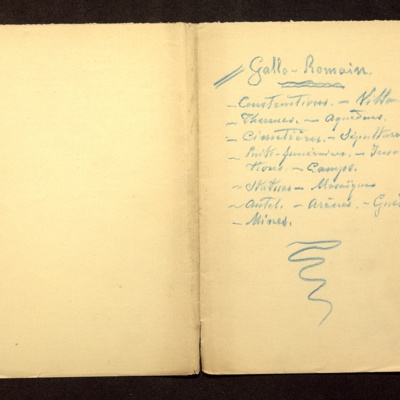 Gallo-Romain.
- Constructions. - Villa
- Thermes. - Aqueducs.
- Cimetières. - Sépultures
- Puits-funéraires. - Inscrip
tions. - Camps.
- Statues - Mosaïques
- Autel. - Arènes. -
- Mines.